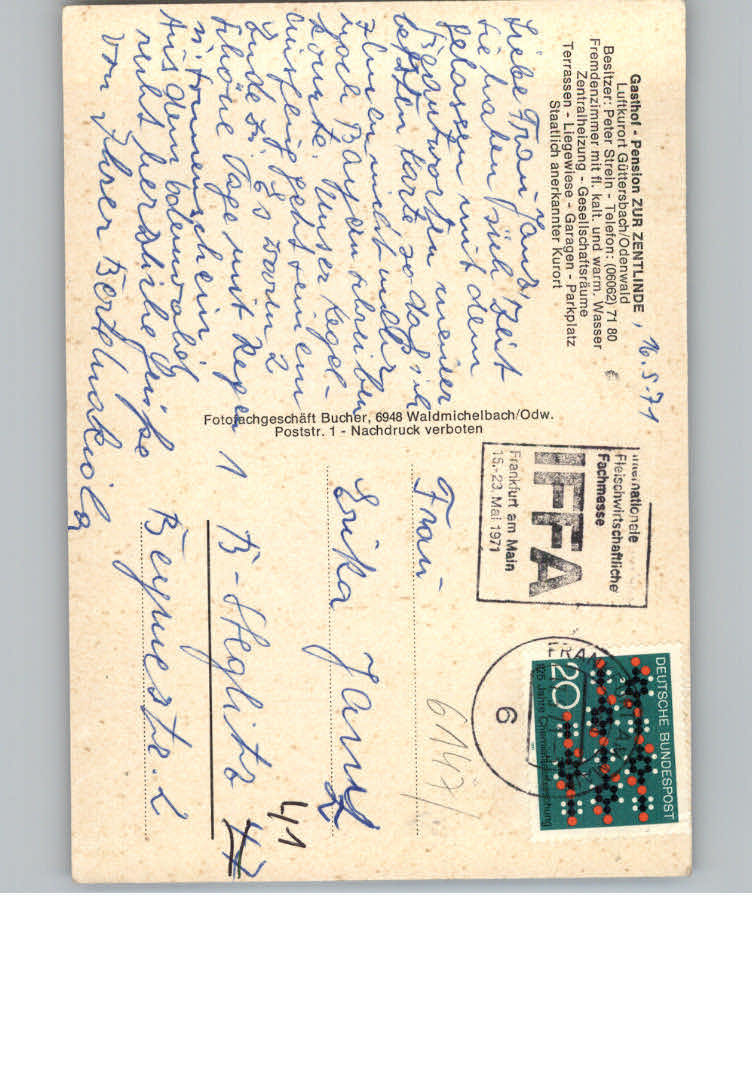 Gasthof - Pension ZUR ZENTLINDE
Luftkurort Güttersbach/Odenwald
Besitzer: Peter Strein - Telefon: (06062) 71 80
Fremdenzimmer mit fl. kalt. und warm. Wasser
Zentralheizung - Gesellschaftsräume
Terrassen - Liegewiese - Garagen - Parkplatz
Staatlich anerkannter Kurort
, 16.5.71
Liebe Frau Jans,
Sie haben sich Zeit
gelassen mit dem
Beantworten meiner
letzten Karte so daß ich
Ihnen nicht mehr
nach Bayern schreiben
konnte. Unser Kegel-
ausflug geht seinem
Ende zu. Es waren 2
schöne Tage mit Regen
u. Sonnenschein.
Aus dem Odenwald
recht herzliche Grüße
von Ihrer
Fotofachgeschäft Bucher, 6948 Waldmichelbach/Odw.
Poststr. 1 - Nachdruck verboten
Internationale
Fleischwirtschaftliche
Fachmesse
IFFA
Frankfurt am Main
15.-23. Mai 1971
6
DEUTSCHE BUNDESPOST
20
125 Jahre Chemiefaserforschung
Frau
Erika Jans
1 B-Steglitz 47
41
Beymestr. 2
6147/